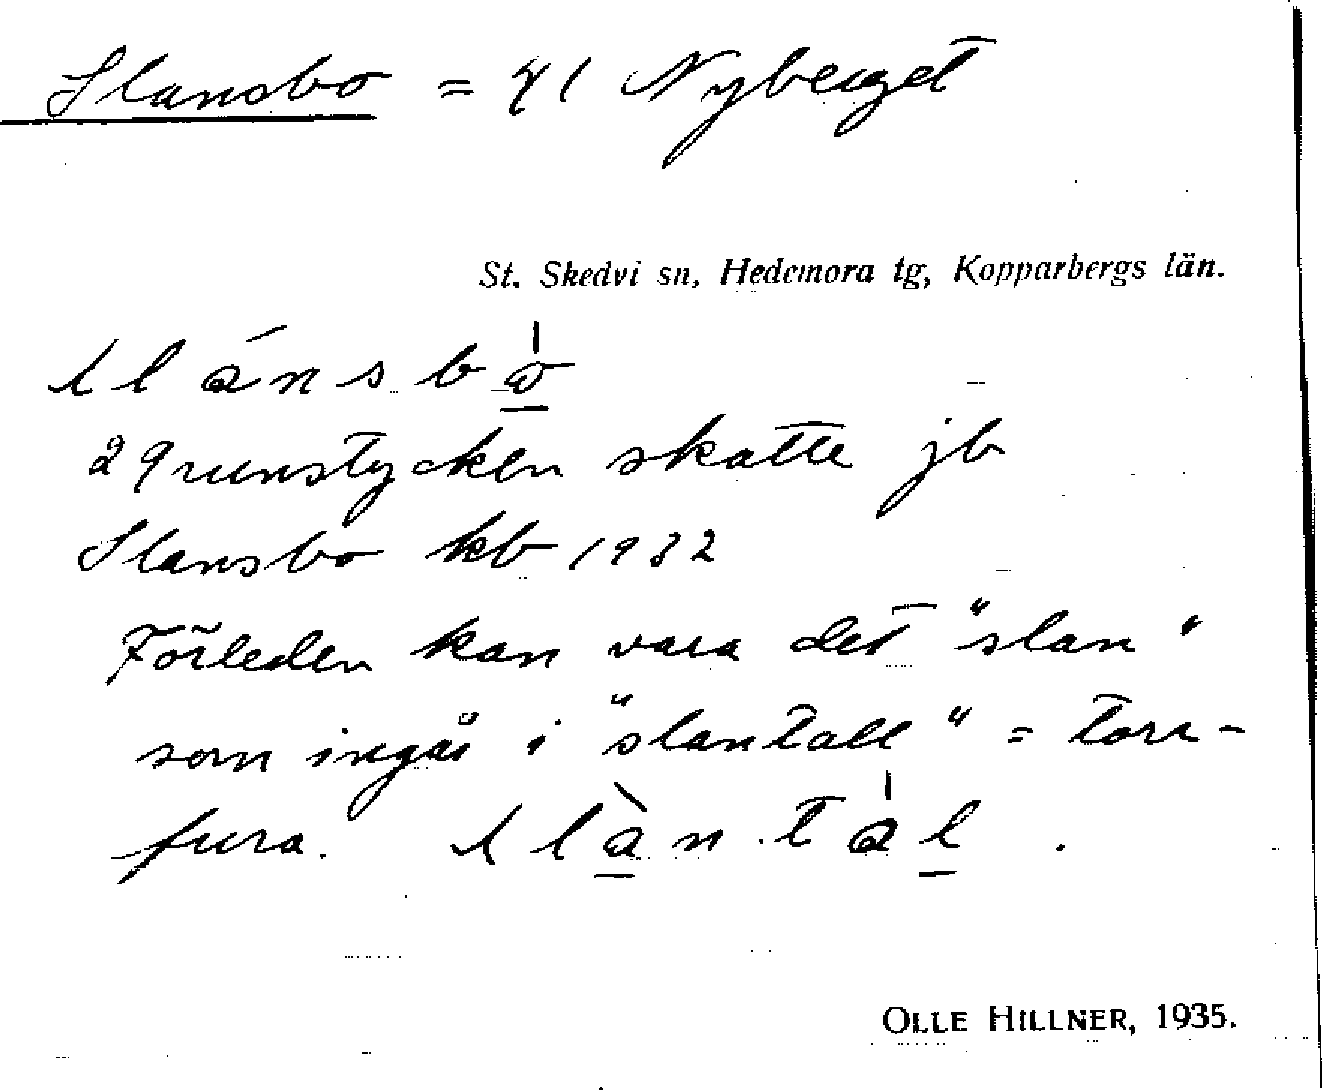 Slansbo = 41 Nyberget
St. Skedvi sn, Hedemora tg, Kopparbergs län.
slánsbω
29 runstycken skatte jb
Slansbo kb 1932
Förleden kan vara det "slan"
som ingår i "slantall" = torr-
fura. slàntàl.
OLLE HILLNER, 1935.